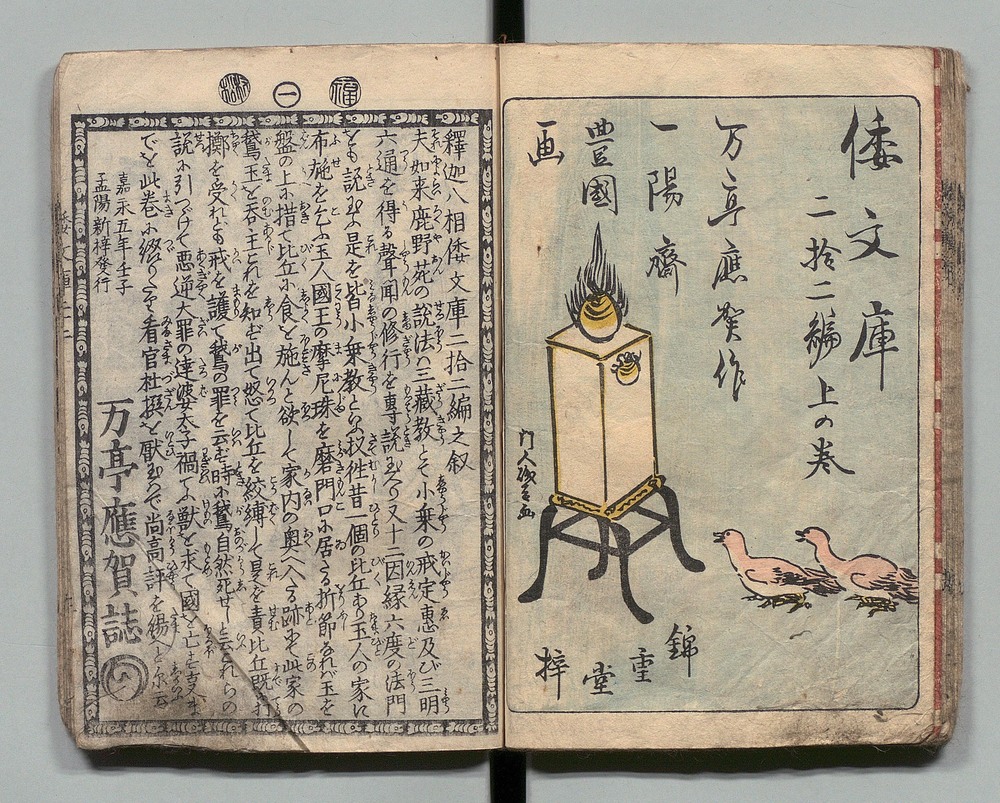 倭文庫
二拾二編上の巻
万亭應賀作
一陽齋
豊國
画
門人
錦重堂梓
福
一
釋迦八相倭文庫二拾二編之叙
夫如来鹿野苑の説法ハ三藏教とて小乗の戒定惠及び三明
六通を得る聲聞の修行を專説玉へり又十二因縁六度の法門
をも説玉ふ是を皆小乗教といふ往昔一個の比丘あり玉人の家に
布施を乞ふ玉人國王の摩尼珠を磨門口に居たる折節なれバ玉を
盤の上に措て比丘に食を施んと欲して家内の奥へ入る跡にて此家の
鵞玉を呑主これを知らず出て怒て比丘を絞縛して是を責比丘既に打
擲を受れども戒を護て鵞の罪を云ず時に鵞自然死せしと云これらの
説に引つけて悪逆大罪の達婆太子禍てふ獣を求て國を亡す
でを此巻に綴りたり看官杜撰を厭玉はで尚高評を賜へと云
嘉永五年壬子
孟陽新梓發行
万亭應賀誌